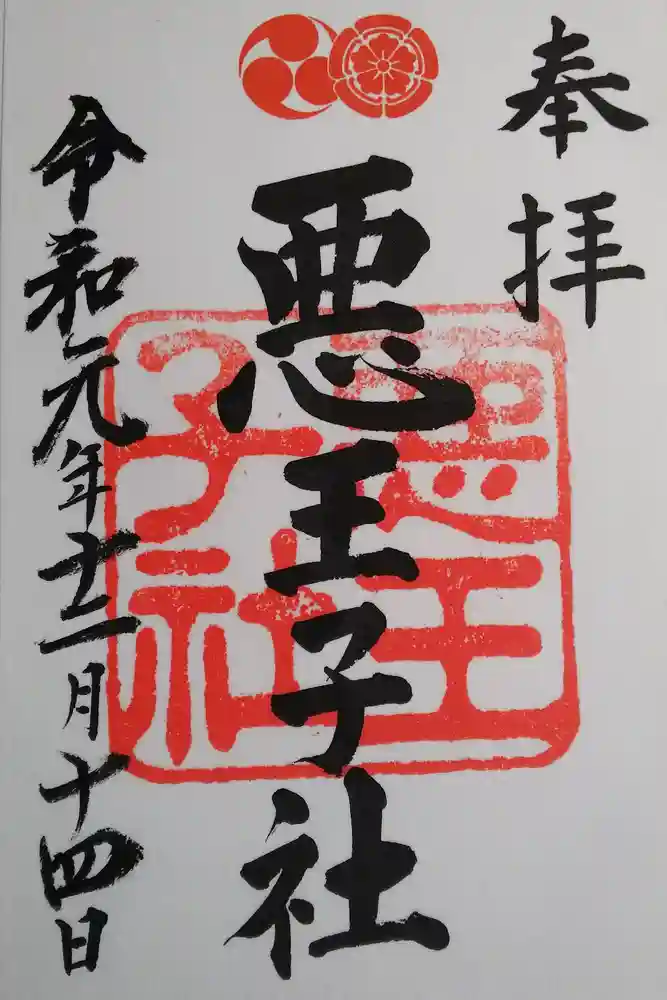 奉拝
悪王子社
悪王子社
令和元年十二月十四日